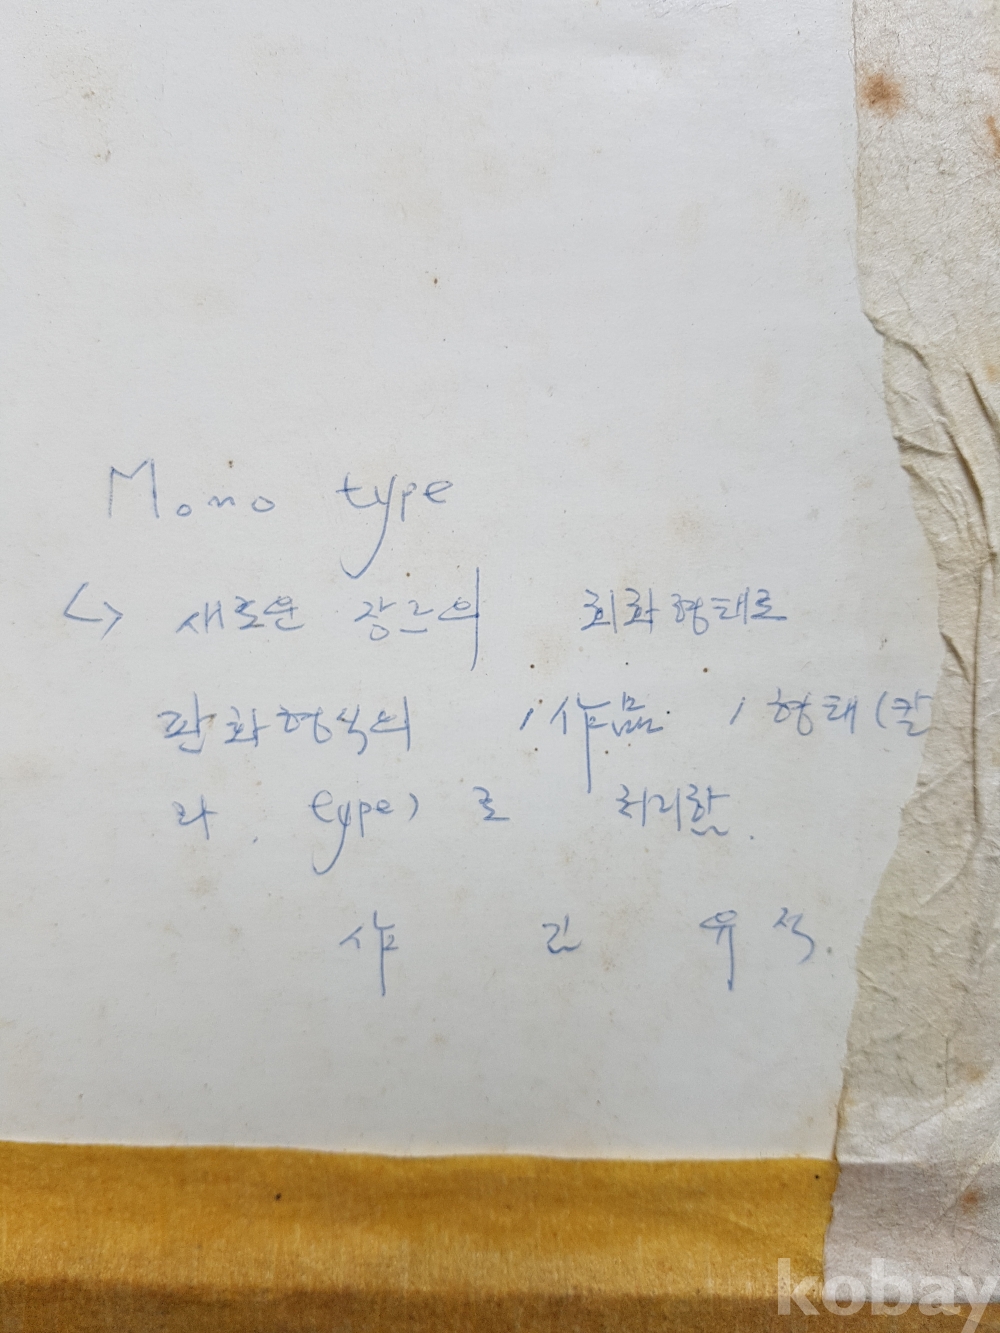 Mono type
↳ 새로운 장르의 회화형태로
판화형식의 '작品' 형태(칼
라. type)로 처리함.
김 유 석.
kobay